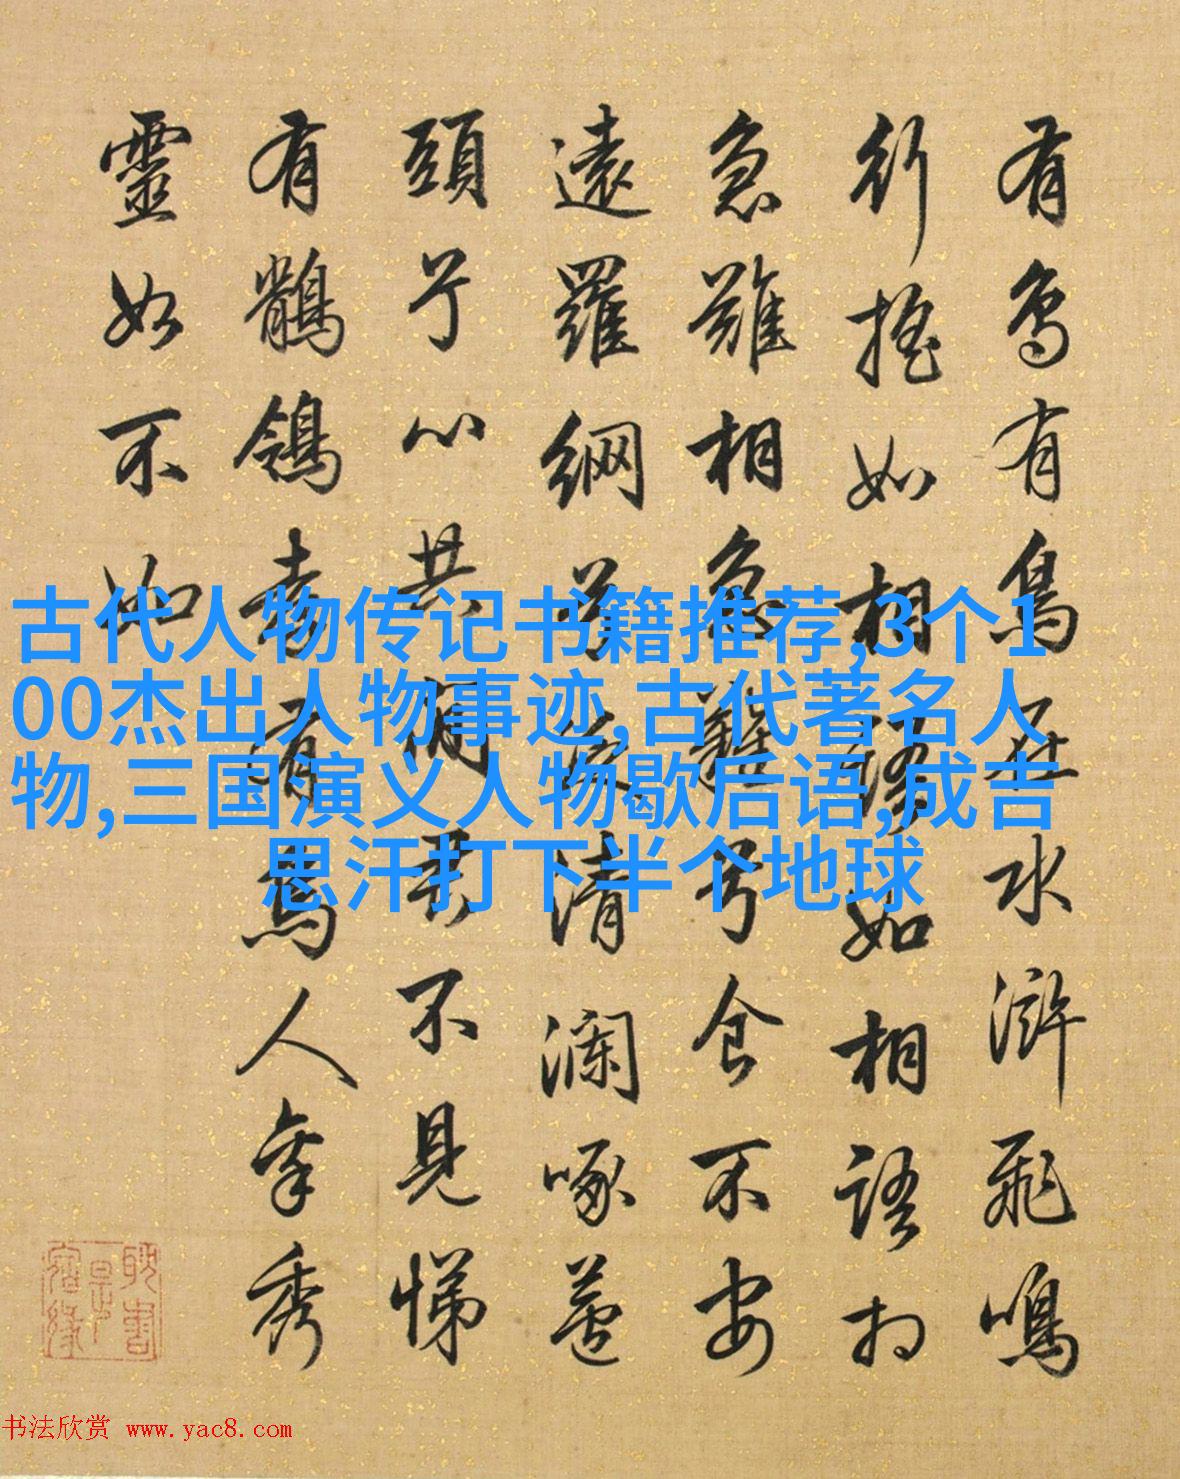 古代人物传记书籍推荐,3个1
00杰出人物事迹,古代著名人
物,三国演义人物歇后语,成吉
思汗打下半个地球
有鳥有鳥在水滸飛鳴
行搖如相語如相語
急難相急難兮食不安
遠羅網兮清瀾啄
頭兮心共君不見悌
有鶺鴒有人秀
靈如不如
书法欣赏 www.yac8.com